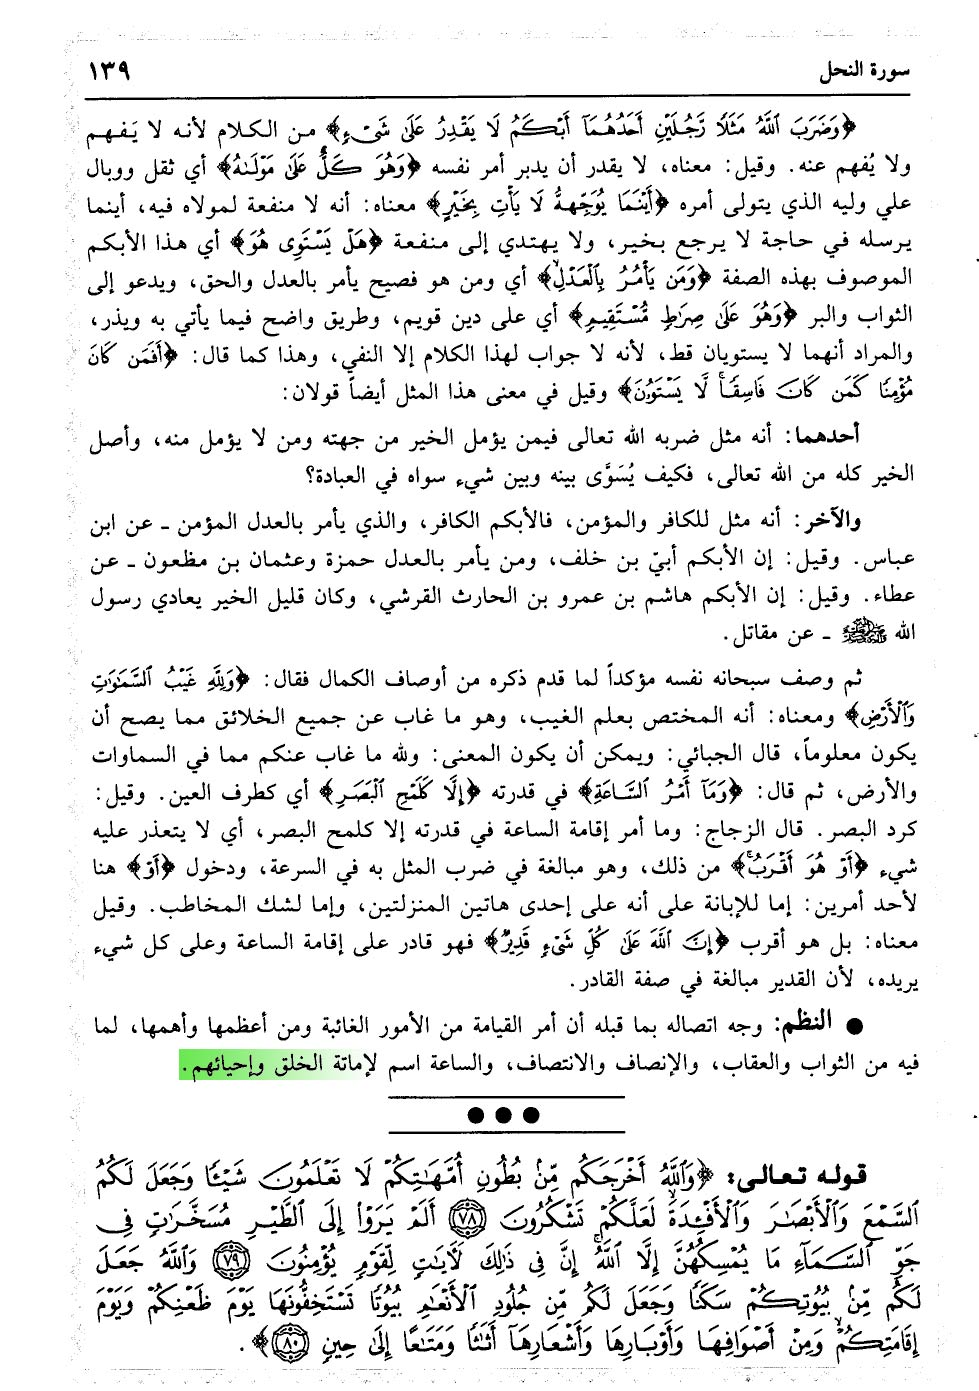 سورة النحل ١٣٩
﴿وَضَرَبَ ٱللَّهُ مَثَلًا رَّجُلَيْنِ أَحَدُهُمَآ أَبْكَمُ لَا يَقْدِرُ عَلَىٰ شَىْءٍ﴾ من الكلام لأنه لا يَفهم
ولا يُفهم عنه. وقيل: معناه، لا يقدر أن يدبر أمر نفسه ﴿وَهُوَ كَلٌّ عَلَىٰ مَوْلَىٰهُ﴾ أي ثقل ووبال
علي وليه الذي يتولى أمره ﴿أَيْنَمَا يُوَجِّههُّ لَا يَأْتِ بِخَيْرٍ﴾ معناه: أنه لا منفعة لمولاه فيه، أينما
يرسله في حاجة لا يرجع بخير، ولا يهتدي إلى منفعة ﴿هَلْ يَسْتَوِى هُوَ﴾ أي هذا الأبكم
الموصوف بهذه الصفة ﴿وَمَن يَأْمُرُ بِٱلْعَدْلِ﴾ أي ومن هو فصيح يأمر بالعدل والحق، ويدعو إلى
الثواب والبر ﴿وَهُوَ عَلَىٰ صِرَٰطٍ مُّسْتَقِيمٍ﴾ أي على دين قويم، وطريق واضح فيما يأتي به ويذر،
والمراد أنهما لا يستويان قط، لأنه لا جواب لهذا الكلام إلا النفي، وهذا كما قال: ﴿أَفَمَن كَانَ
مُؤْمِنًا كَمَن كَانَ فَاسِقًا لَّا يَسْتَوُۥنَ﴾ وقيل في معنى هذا المثل أيضاً قولان:
أحدهما: أنه مثل ضربه الله تعالى فيمن يؤمل الخير من جهته ومن لا يؤمل منه، وأصل
الخير كله من الله تعالى، فكيف يُسَوَّى بينه وبين شيء سواه في العبادة؟
والآخر: أنه مثل للكافر والمؤمن، فالأبكم الكافر، والذي يأمر بالعدل المؤمن ـ عن ابن
عباس. وقيل: إن الأبكم أبيّ بن خلف، ومن يأمر بالعدل حمزة وعثمان بن مظعون ـ عن
عطاء. وقيل: إن الأبكم هاشم بن عمرو بن الحارث القرشي، وكان قليل الخير يعادي رسول
الله ﷺ ـ عن مقاتل.
ثم وصف سبحانه نفسه مؤكداً لما قدم ذكره من أوصاف الكمال فقال: ﴿وَلِلَّهِ غَيْبُ ٱلسَّمَٰوَٰتِ
وَٱلْأَرْضِ﴾ ومعناه: أنه المختص بعلم الغيب، وهو ما غاب عن جميع الخلائق مما يصح أن
يكون معلوماً، قال الجبائي: ويمكن أن يكون المعنى: ولله ما غاب عنكم مما في السماوات
والأرض، ثم قال: ﴿وَمَآ أَمْرُ ٱلسَّاعَةِ﴾ في قدرته ﴿إِلَّا كَلَمْحِ ٱلْبَصَرِ﴾ أي كطرف العين. وقيل:
كرد البصر. قال الزجاج: وما أمر إقامة الساعة في قدرته إلا كلمح البصر، أي لا يتعذر عليه
شيء ﴿أَوْ هُوَ أَقْرَبُ﴾ من ذلك، وهو مبالغة في ضرب المثل به في السرعة، ودخول ﴿أَوْ﴾ هنا
لأحد أمرين: إما للإبانة على أنه على إحدى هاتين المنزلتين، وإما لشك المخاطب. وقيل
معناه: بل هو أقرب ﴿إِنَّ ٱللَّهَ عَلَىٰ كُلِّ شَىْءٍ قَدِيرٌ﴾ فهو قادر على إقامة الساعة وعلى كل شيء
يريده، لأن القدير مبالغة في صفة القادر.
● النظم: وجه اتصاله بما قبله أن أمر القيامة من الأمور الغائبة ومن أعظمها وأهمها، لما
فيه من الثواب والعقاب، والإنصاف والانتصاف، والساعة اسم لإماتة الخلق وإحيائهم.
● ● ●
قوله تعالى: ﴿وَٱللَّهُ أَخْرَجَكُم مِّنۢ بُطُونِ أُمَّهَٰتِكُمْ لَا تَعْلَمُونَ شَيْـًٔا وَجَعَلَ لَكُمُ
ٱلسَّمْعَ وَٱلْأَبْصَٰرَ وَٱلْأَفْـِٔدَةَ لَعَلَّكُمْ تَشْكُرُونَ ٧٨ أَلَمْ يَرَوْا۟ إِلَى ٱلطَّيْرِ مُسَخَّرَٰتٍ فِى
جَوِّ ٱلسَّمَآءِ مَا يُمْسِكُهُنَّ إِلَّا ٱللَّهُ إِنَّ فِى ذَٰلِكَ لَءَايَٰتٍ لِّقَوْمٍ يُؤْمِنُونَ ٧٩ وَٱللَّهُ جَعَلَ
لَكُم مِّنۢ بُيُوتِكُمْ سَكَنًا وَجَعَلَ لَكُم مِّن جُلُودِ ٱلْأَنْعَٰمِ بُيُوتًا تَسْتَخِفُّونَهَا يَوْمَ ظَعْنِكُمْ وَيَوْمَ
إِقَامَتِكُمْ وَمِنْ أَصْوَافِهَا وَأَوْبَارِهَا وَأَشْعَارِهَآ أَثَٰثًا وَمَتَٰعًا إِلَىٰ حِينٍ ٨٠﴾.